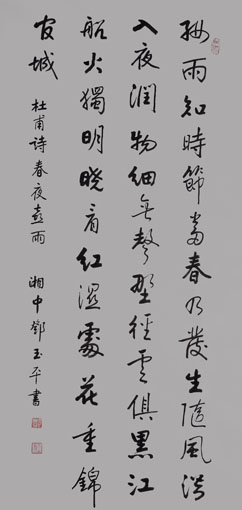 好雨知時節當春乃發生隨風潛
入夜潤物細無聲野徑云俱黑江
船火獨明曉看紅濕處花重錦
官城 杜甫詩春夜喜雨 湘中鄧玉平書